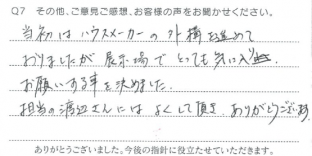 Q7 その他、ご意見ご感想、お客様の声をお聞かせください。
当初はハウスメーカーの外構を進めて
おりましたが 展示場で とても気に入り
お願いする事を決めました。
担当の渡辺さんには よくして頂き ありがとうございます
ありがとうございました。今後の指針に役立たせていただきます。